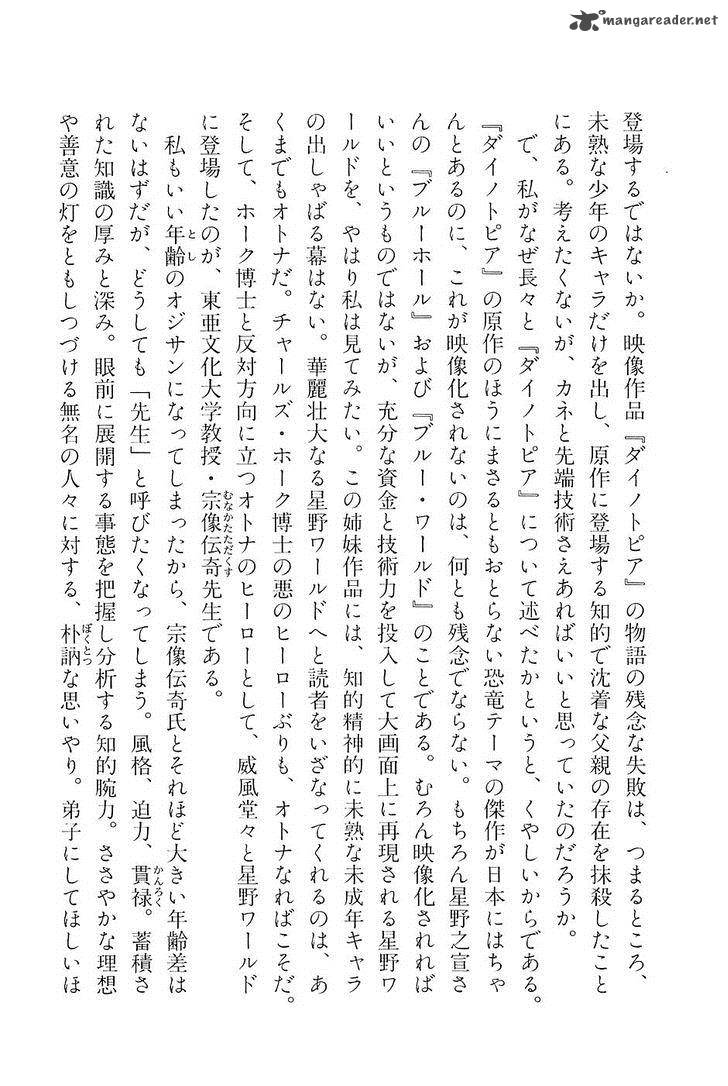 mangareader.net
登場するではないか。映像作品『ダイノトピア』の物語の残念な失敗は、つまるところ、
未熟な少年のキャラだけを出し、原作に登場する知的で沈着な父親の存在を抹殺したこと
にある。考えたくないが、カネと先端技術さえあればいいと思っていたのだろうか。
で、私がなぜ長々と『ダイノトピア』について述べたかというと、くやしいからである。
『ダイノトピア』の原作のほうにまさるともおとらない恐竜テーマの傑作が日本にはちゃ
んとあるのに、これが映像化されないのは、何とも残念でならない。もちろん星野之宣さ
んの『ブルーホール』および『ブルー・ワールド』のことである。むろん映像化されれば
いいというものではないが、充分な資金と技術力を投入して大画面上に再現される星野ワ
ールドを、やはり私は見てみたい。この姉妹作品には、知的精神的に未熟な未成年キャラ
の出しゃばる幕はない。華麗壮大なる星野ワールドへと読者をいざなってくれるのは、あ
くまでもオトナだ。チャールズ・ホーク博士の悪のヒーローぶりも、オトナなればこそだ。
そして、ホーク博士と反対方向に立つオトナのヒーローとして、威風堂々と星野ワールド
に登場したのが、東亜文化大学教授・宗像伝奇先生である。
むなかたただくす
私もいい年齢のオジサンになってしまったから、宗像伝奇氏とそれほど大きい年齢差は
とし
ないはずだが、どうしても「先生」と呼びたくなってしまう。風格、迫力、貫禄。蓄積さ
かんろく
れた知識の厚みと深み。眼前に展開する事態を把握し分析する知的腕力。ささやかな理想
や善意の灯をともしつづける無名の人々に対する、朴訥な思いやり。弟子にしてほしいほ
ぼくとつ